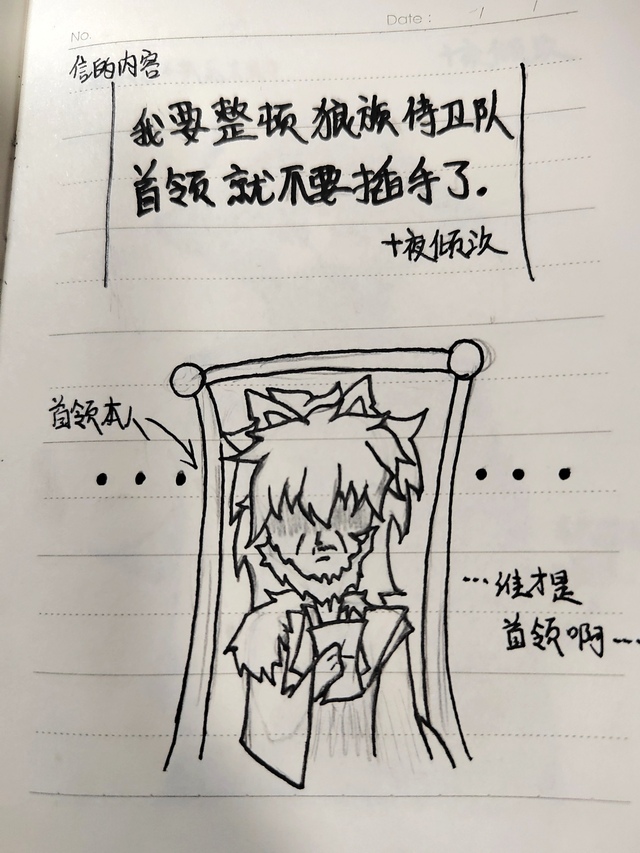 No.
Date :
信的内容
我要整顿狼族侍卫队
首领就不要插手了.
十夜倾次
首领本人
...谁才是
首领啊...